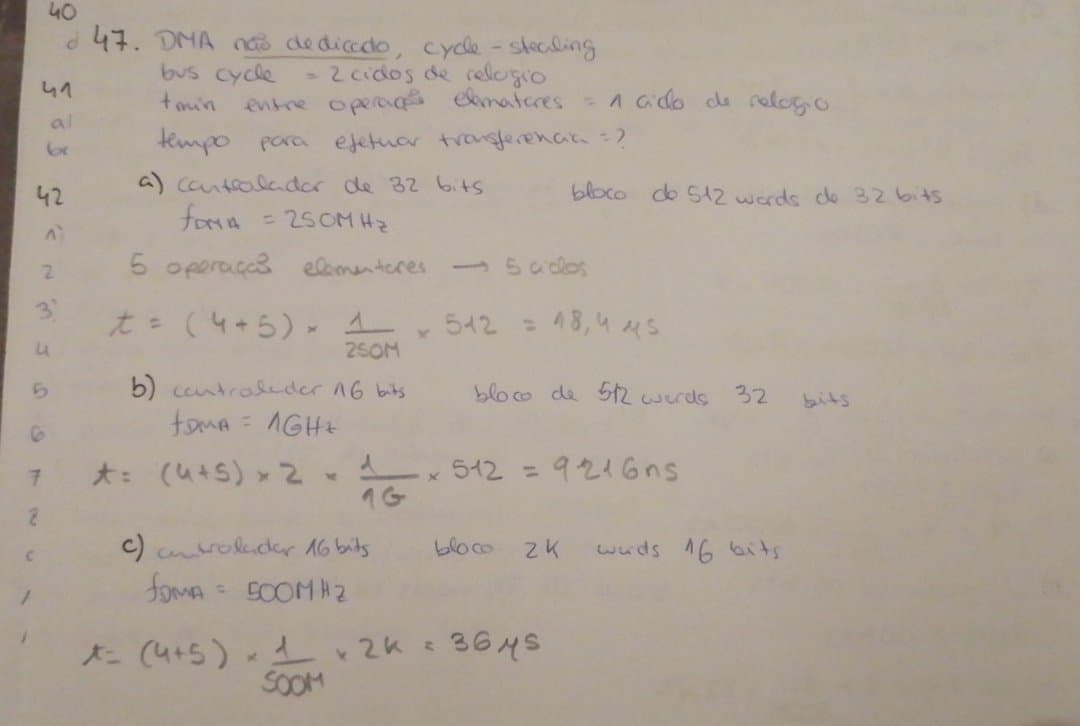 40
d
47. DMA não dedicado, cycle-stealing
bus cycle = 2 ciclos de relogio
41
tmin entre operações elementares = 1 ciclo de relogio
a)
tempo para efetuar transferencia = ?
42
a) controlador de 32 bits bloco de 512 words de 32 bits
fDMA = 250MHz
1)
2
5 operações elementares → 5 ciclos
3)
t = (4+5) × 1/250M × 512 = 18,4 μs
4
5
b) controlador 16 bits bloco de 512 words 32 bits
6
fDMA = 1GHz
7
t = (4+5) × 2 × 1/1G × 512 = 9216ns
c
c) controlador 16 bits bloco 2K words 16 bits
fDMA = 500MHz
t = (4+5) × 1/500M × 2K = 36 μs